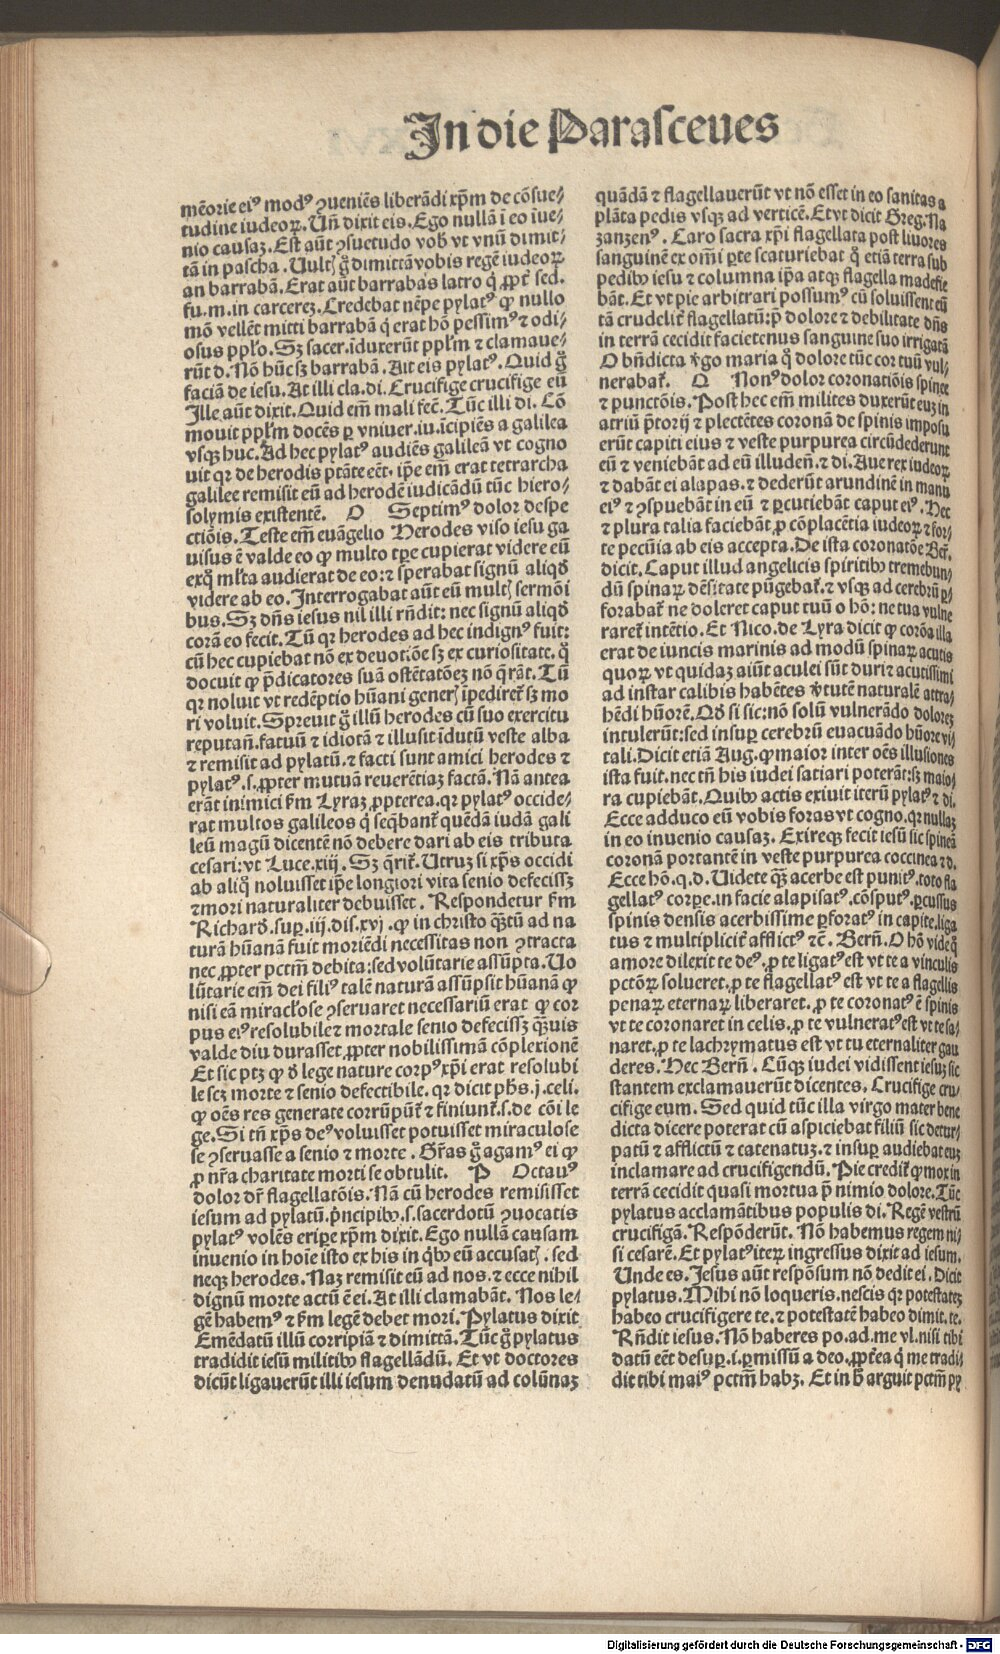 In die Parasceues
mẽorie eiꝰ modꝰ ꝯueniẽs liberãdi xp̃m de cõsue⸗
tudine iudeoꝝ. Vñ dixit eis. Ego nullã ĩ eo ĩue⸗
nio causaꝫ. Est aũt ꝯsuetudo vob̃ vt vnũ dimit⸗
tã in pascha. Vultꝭ g̃ dimittã vobis regẽ iudeoꝝ
an barrabã. Erat aũt barrabas latro q̇ ꝓpt̃ sed.
fu. m. in carcereꝫ. Credebat nẽpe pylatꝰ ꝙ nullo
mõ vellẽt mitti barrabã q̇ erat hõ pessimꝰ ⁊ odi⸗
osus ppło. Sꝫ sacer. ĩduxerũt ppłm ⁊ clamaue⸗
rũt d. Nõ hũc sꝫ barrabã. Ait eis pylatꝰ. Quid g̃
faciã de iesu. At illi cla. di. Crucifige crucifige eũ
Ille aũt dixit. Quid em̃ mali fec̃. Tũc illi di. Cõ
mouit ppłm docẽs ꝑ vniuer. iu. ĩcipiẽs a galilea
vsqꝫ huc. Ad hec pylatꝰ audiẽs galileã vt cogno
uit qꝛ de herodis ptãte eẽt. ip̃e em̃ erat tetrarcha
galilee remisit eũ ad herodẽ iudicãdũ tũc hiero⸗
solymis existentẽ. O Septimꝰ dolor despe
ctiõis. Teste em̃ euãgelio Herodes viso iesu ga
uisus ẽ valde eo ꝙ multo tꝑe cupierat videre eũ
exq̊ młta audierat de eo: ⁊ sperabat signũ aliqd̃
videre ab eo. Interrogabat aũt eũ multꝭ sermõi
bus. Sꝫ dñs iesus nil illi rñdit: nec signũ aliqd̃
corã eo fecit. Tũ qꝛ herodes ad hec indignꝰ fuit:
cũ hec cupiebat nõ ex deuotiõe sꝫ ex curiositate. q̊
docuit ꝙ p̃dicatores suã ostẽtatõeꝫ nõ q̃rãt. Tũ
qꝛ noluit vt redẽptio hũani generꝭ ĩpediret̃ sꝫ mo
ri voluit. Spreuit g̃ illũ herodes cũ suo exercitu
reputañ. fatuũ ⁊ idiotã ⁊ illusit ĩdutũ veste alba
⁊ remisit ad pylatũ. ⁊ facti sunt amici herodes ⁊
pylatꝰ. s. ꝓpter mutuã reuerẽtiaꝫ factã. Nã antea
erãt inimici f̃m Lyraꝫ ꝓpterea. qꝛ pylatꝰ occide⸗
rat multos galileos q̇ seq̃bant̃ quẽdã iudã gali
leũ magũ dicentẽ nõ debere dari ab eis tributa
cesari: vt Luce. xiij. Sꝫ q̃rit̃. Utruꝫ si xp̃s occidi
ab aliq̊ noluisset ip̃e longiori vita senio defecissꝫ
⁊ mori naturaliter debuisset. Respondetur f̃m
Richard̃. suꝑ. iij. dis. xvj. ꝙ in christo q̃ꝫtũ ad na
turã hũanã fuit moriẽdi necessitas non ꝯtracta
nec ꝓpter pctm̃ debita: sed volũtarie assũpta. Uo
lũtarie em̃ dei filiꝰ talẽ naturã assũpsit hũanã ꝙ
nisi eã miracłose ꝯseruaret necessariũ erat ꝙ cor
pus eiꝰ resolubile ⁊ mortale senio defecissꝫ q̃ꝫuis
valde diu durasset, ꝓpter nobilissimã cõplexionẽ
Et sic ptꝫ ꝙ d̃ lege nature corpꝰ xp̃i erat resolubi
le scꝫ morte ⁊ senio defectibile. qꝛ dicit ph̃s. j. celi.
ꝙ oẽs res generate corrũpũt̃ ⁊ finiunt̃. s. de cõi le
ge. Si tñ xp̃s deꝰ voluisset potuisset miraculose
se ꝯseruasse a senio ⁊ morte. Gr̃as g̃ agamꝰ ei ꝙ
ꝓ nr̃a charitate morti se obtulit. P Octauꝰ
dolor dr̃ flagellatõis. Nã cũ herodes remisisset
iesum ad pylatũ. p̃ncipibꝰ. s. sacerdotũ ꝯuocatis
pylatꝰ volẽs eripe xp̃m dixit. Ego nullã causam
inuenio in hoĩe isto ex his in qͥbꝰ eũ accusatꝭ. sed
neqꝫ herodes. Naꝫ remisit eũ ad nos. ⁊ ecce nihil
dignũ morte actũ ẽ ei. At illi clamabãt. Nos le⸗
gẽ habemꝰ ⁊ f̃m legẽ debet mori. Pylatus dixit
Emẽdatũ illũ corripiã ⁊ dimittã. Tũc g̃ pylatus
tradidit iesũ militibꝰ flagellãdũ. Et vt doctores
dicũt ligauerũt illi iesum denudatũ ad colũnaꝫ
quãdã ⁊ flagellauerũt vt nõ esset in eo sanitas a
plãta pedis vsqꝫ ad verticẽ. Et vt dicit Greg. Na
zanzenꝰ. Caro sacra xp̃i flagellata post liuores
sanguinẽ ex om̃i ꝑte scaturiebat q̊ etiã terra sub
pedibꝰ iesu ⁊ columna ip̃a atqꝫ flagella madefie
bãt. Et vt pie arbitrari possumꝰ cũ soluissent eũ
tã crudelit̃ flagellatũ: p̃ dolore ⁊ debilitate dñs
in terrã cecidit facie tenus sanguine suo irrigatã
O bñdicta v̓go maria q̊ dolore tũc cor tuũ vul⸗
nerabat̃. O Nonꝰ dolor coronatiõis spinee
⁊ punctõis. Post hec em̃ milites duxerũt euꝫ in
atriũ p̃torij ⁊ plectẽtes coronã de spinis imposu
erũt capiti eius ⁊ veste purpurea circũdederunt
eũ ⁊ veniebãt ad eũ illudeñ. ⁊ di. Aue rex iudeoꝝ
⁊ dabãt ei alapas. ⁊ dederũt arundinẽ in manu
eiꝰ ⁊ ꝯspuebãt in eũ ⁊ ꝑcutiebãt caput eiꝰ. Hec
⁊ plura talia faciebãt ꝓ cõplacẽtia iudeoꝝ ⁊ for⸗
te pecũia ab eis accepta. De ista coronatõe Ber̃.
dicit. Caput illud angelicis spiritibꝰ tremebun⸗
dũ spinaꝝ dẽsitate pũgebat̃. ⁊ vsqꝫ ad cerebrũ ꝑ⸗
forabat̃ ne doleret caput tuũ o hõ: ne tua vulne
raret̃ intẽtio. Et Nico. de Lyra dicit ꝙ corõa illa
erat de iuncis marinis ad modũ spinaꝝ acutis
quoꝝ vt quidaꝫ aiũt aculei sũt duri ⁊ acutissimi
ad instar calibis habẽtes v̓tutẽ naturalẽ attra⸗
hẽdi hũorẽ. Qd̃ si sic: nõ solũ vulnerãdo doloreꝫ
intulerũt: sed insuꝑ cerebrũ euacuãdo hũore vi⸗
tali. Dicit etiã Aug. ꝙ maior inter oẽs illusiones
ista fuit. nec tñ his iudei satiari poterãt: sꝫ maio⸗
ra cupiebãt. Quibꝰ actis exiuit iterũ pylatꝰ ⁊ di.
Ecce adduco eũ vobis foras vt cogno. qꝛ nullaꝫ
in eo inuenio causaꝫ. Exireqꝫ fecit iesũ sic spineã
coronã portantẽ in veste purpurea coccinea ⁊ d.
Ecce hõ. q. d. Uidete q̃ꝫ acerbe est punitꝰ. toto fla
gellatꝰ corpe. in facie alapisatꝰ. cõsputꝰ. ꝑcussus
spinis densis acerbissime ꝑforatꝰ in capite. liga
tus ⁊ multiplicit̃ afflictꝰ ⁊c̃. Berñ. O hõ vide q̊
amore dilexit te deꝰ. ꝓ te ligatꝰ est vt te a vinculis
pctõꝝ solueret. ꝓ te flagellatꝰ est vt te a flagellis
penaꝝ eternaꝝ liberaret. ꝓ te coronatꝰ ẽ spinis
vt te coronaret in celis. ꝓ te vulneratꝰ est vt te sa⸗
naret. ꝓ te lachrymatus est vt tu eternaliter gau
deres. Hec Berñ. Cũqꝫ iudei vidissent iesuꝫ sic
stantem exclamauerũt dicentes. Crucifige cru⸗
cifige eum. Sed quid tũc illa virgo mater bene
dicta dicere poterat cũ aspiciebat filiũ sic detur⸗
patũ ⁊ afflictũ ⁊ catenatuꝫ. ⁊ insuꝑ audiebat euꝫ
inclamare ad crucifigendũ. Pie credit̃ ꝙ mox in
terrã cecidit quasi mortua p̃ nimio dolore. Tũc
pylatus acclamãtibus populis di. Regẽ vestrũ
crucifigã. Respõderũt. Nõ habemus regem ni⸗
si cesarẽ. Et pylatꝰ iteꝝ ingressus dixit ad iesum.
Unde es. Jesus aũt respõsum nõ dedit ei. Dicit
pylatus. Mihi nõn loqueris. nescis qꝛ potestateꝫ
habeo crucifigere te. ⁊ potestatẽ habeo dimit. te.
Rñdit iesus. Nõ haberes po. ad. me vl. nisi tibi
datũ eẽt desuꝑ. i. ꝑmissũ a deo. ꝓpt̃ea q̇ me tradi⸗
dit tibi maiꝰ pctm̃ habꝫ. Et in h̃ arguit pctm̃ py
Digitalisierung gefördert durch die Deutsche Forschungsgemeinschaft - DFG